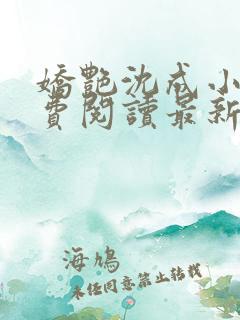 嬌艷沈戒小
費閱讀最新
海鳩
未經同意禁止转载